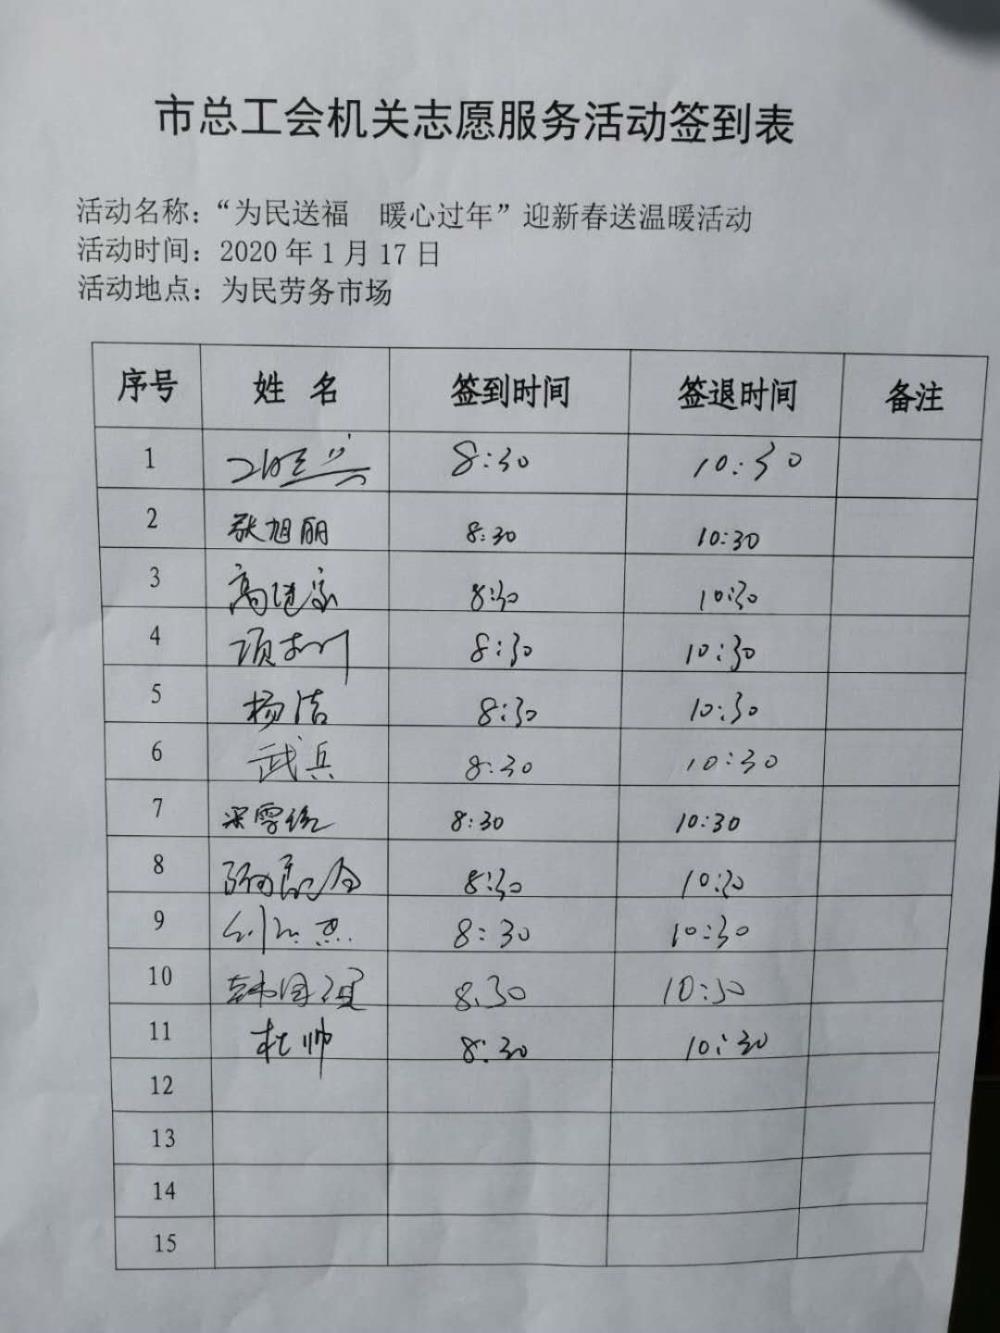 市总工会机关志愿服务活动签到表
活动名称：“为民送福　暖心过年”迎新春送温暖活动
活动时间：2020 年 1 月 17 日
活动地点：为民劳务市场
序号 姓 名 签到时间 签退时间 备注
1 8:30 10:30
2 耿旭丽 8:30 10:30
3 8:30 10:30
4 8:30 10:30
5 杨洁 8:30 10:30
6 武兵 8:30 10:30
7 8:30 10:30
8 8:30 10:30
9 8:30 10:30
10 8.30 10:30
11 杜帅 8:30 10:30
12
13
14
15